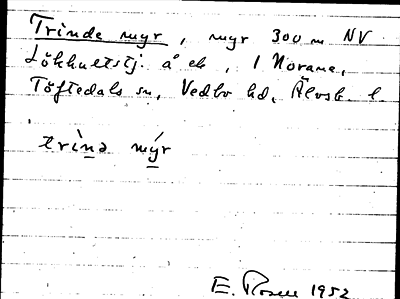 Trinde myr, myr 300 m NV
Lökhultstj. å ek, i Norane,
Töftedals sn, Vedbo hd, Älvsb. l.
trìnə mýr
E. Rosell 1952